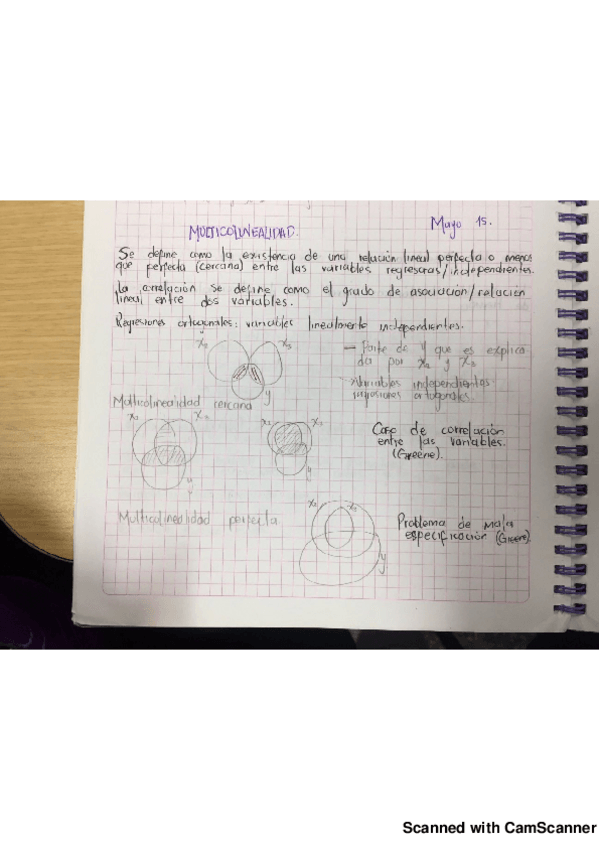 Mayo 15.
MULTICOLINEALIDAD.
Se define como la existencia de una relación lineal perfecta o menos
que perfecta (cercana) entre las variables regresoras/independientes.
La correlación se define como el grado de asociación/relación
lineal entre dos variables.
Regresiones ortogonales: variables linealmente independientes.
X2 X3
y
— Parte de y que es explica
da por X2 y X3
Variables independientes
regresiones ortogonales.
Multicolinealidad cercana
y
y
Caso de correlación
entre las variables.
(Greene).
Multicolinealidad perfecta
X2 X3
y
Problema de mala
especificación (Greene).
Scanned with CamScanner